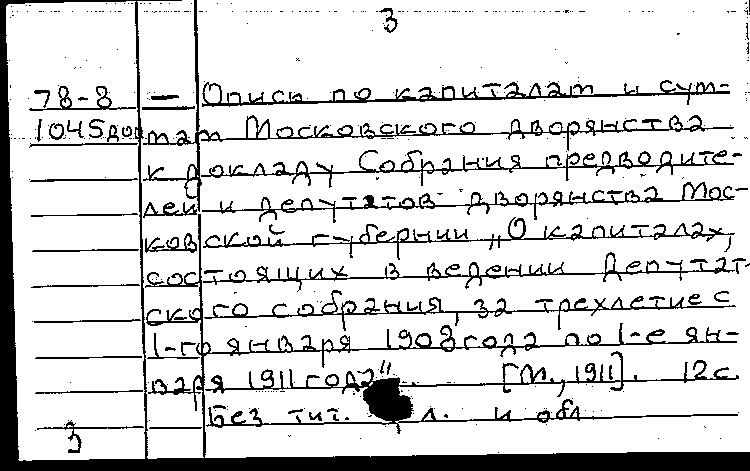 3
78-8 — Опись по капиталам и сум-
1045доп мам Московского дворянства
к докладу Собрания предводите-
лей и депутатов дворянства Мос-
ковской губернии „О капиталах,
состоящих в ведении Депутат-
ского собрания, за трехлетие с
1-го января 1908 года по 1-е ян-
варя 1911 года". [М., 1911]. 12 с.
Без тит. л. и обл.
3